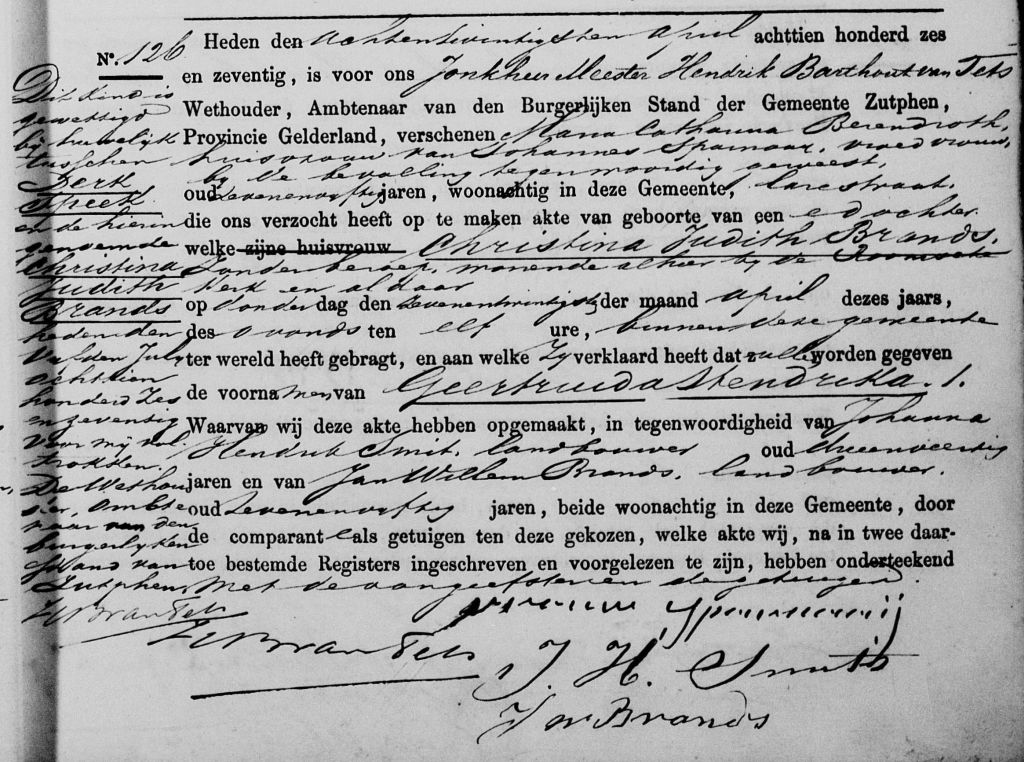 Nº. 126
Heden den achtentwintigsten april achttien honderd zes
en zeventig, is voor ons Jonkheer Meester Hendrik Barthout van Tets
Wethouder, Ambtenaar van den Burgerlijken Stand der Gemeente Zutphen,
Provincie Gelderland, verschenen Maria Catharina Berendroth,
huisvrouw van Johannes Spanaaij, vroedvrouw,
bij de bevalling tegenwoordig geweest,
oud Zevenenvyftig jaren, woonachtig in deze Gemeente, straat,
die ons verzocht heeft op te maken akte van geboorte van een e dochter
welke zijne huisvrouw Christina Judith Brands,
zonder beroep, wonende alhier bij de
Kerk en aldaar
op donder dag den zevenentwintigst der maand april dezes jaars,
des avonds ten elf ure, binnen deze gemeente
ter wereld heeft gebragt, en aan welke Zy verklaard heeft dat zulle worden gegeven
de voorna men van Geertruida Hendrika. /.
Waarvan wij deze akte hebben opgemaakt, in tegenwoordigheid van Johanna
Hendrik Smit, landbouwer oud drieenveertig
jaren en van Jan Willem Brands, landbouwer,
oud Zevenenvyftig jaren, beide woonachtig in deze Gemeente, door
de comparant e als getuigen ten deze gekozen, welke akte wij, na in twee daar-
toe bestemde Registers ingeschreven en voorgelezen te zijn, hebben onderteekend
met de aangeefster en de getuigen.
vrouw
HB van Tets
J. H. Smit
J W Brands
Dit Kind is
gewettigd
bij huwelijk
tusschen
Derk
Speek
en de hierin
genoemde
Christina
Judith
Brands
heden den
July
achttien
honderd Zes
en zeventig
Voor mij vol-
trokken.
De Wethou-
der, ambte-
naar van den
burgerlyken
stand van
Zutphen,
HB van Tets